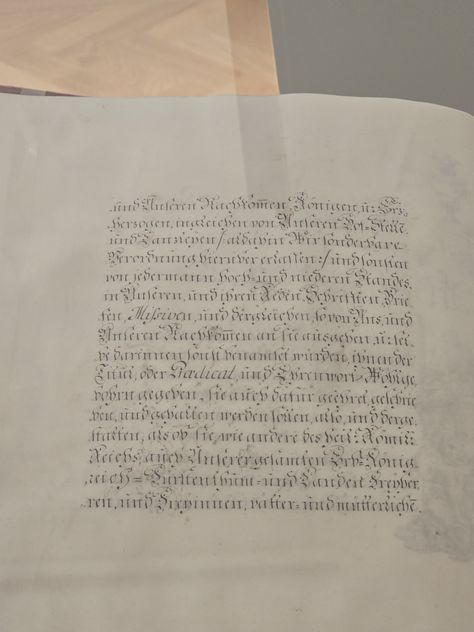 und Unseren Nachkom̅en, Königen, u: Ertz-
herzogen, ingleichen von Unseren Hof-Stelle
und Cantzleyen /:aldahin Wir sonderbare
Verordnung hierüber erlassen:/ und sonsten
von jedermann hoch- und niederen Standes,
in Unseren, und ihren Reden, Schrifften, Brie-
fen, Missiven, und dergleichen, so von Uns, und
Unseren Nachkom̅en an sie ausgehen, u: sei-
re darinnen sonst benamset würden, ihnen der
Titul, oder Praedicat, und Ehrenwort, Wohlge-
bohrn gegeben, sie auch dafür geehret, geschrie-
ben, und gehalten werden sollen, also, und derge-
stalten, als ob sie, wie andere des Heil: Römis:
Reichs, auch Unserer gesamten Erb-König-
reich-Fürstenthum- und Landen Freyher-
ren, und Freyinnen, vatter- und mütterliche